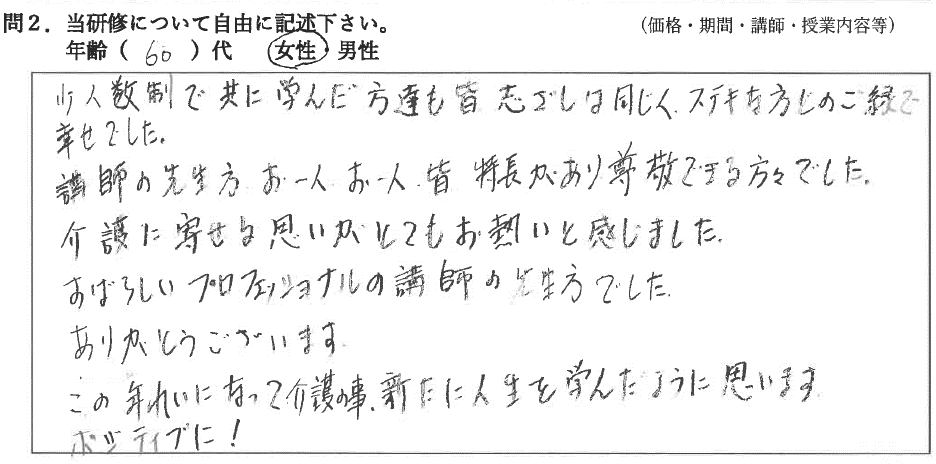 問2．当研修について自由に記述下さい。 （価格・期間・講師・授業内容等）
年齢（ 60 ）代 女性・男性
少人数制で共に学んだ方達も皆志ざしは同じく、ステキな方じのご縁で
幸せでした。
講師の先生方 お一人 お一人 皆 特長があり尊敬できる方々でした。
介護に寄せる思いがとてもお熱いと感じました。
すばらしいプロフェッショナルの講師の先生方でした。
ありがとうございます
この年れいになって介護の事、新たに人生を学んだように思います
ポジティブに！